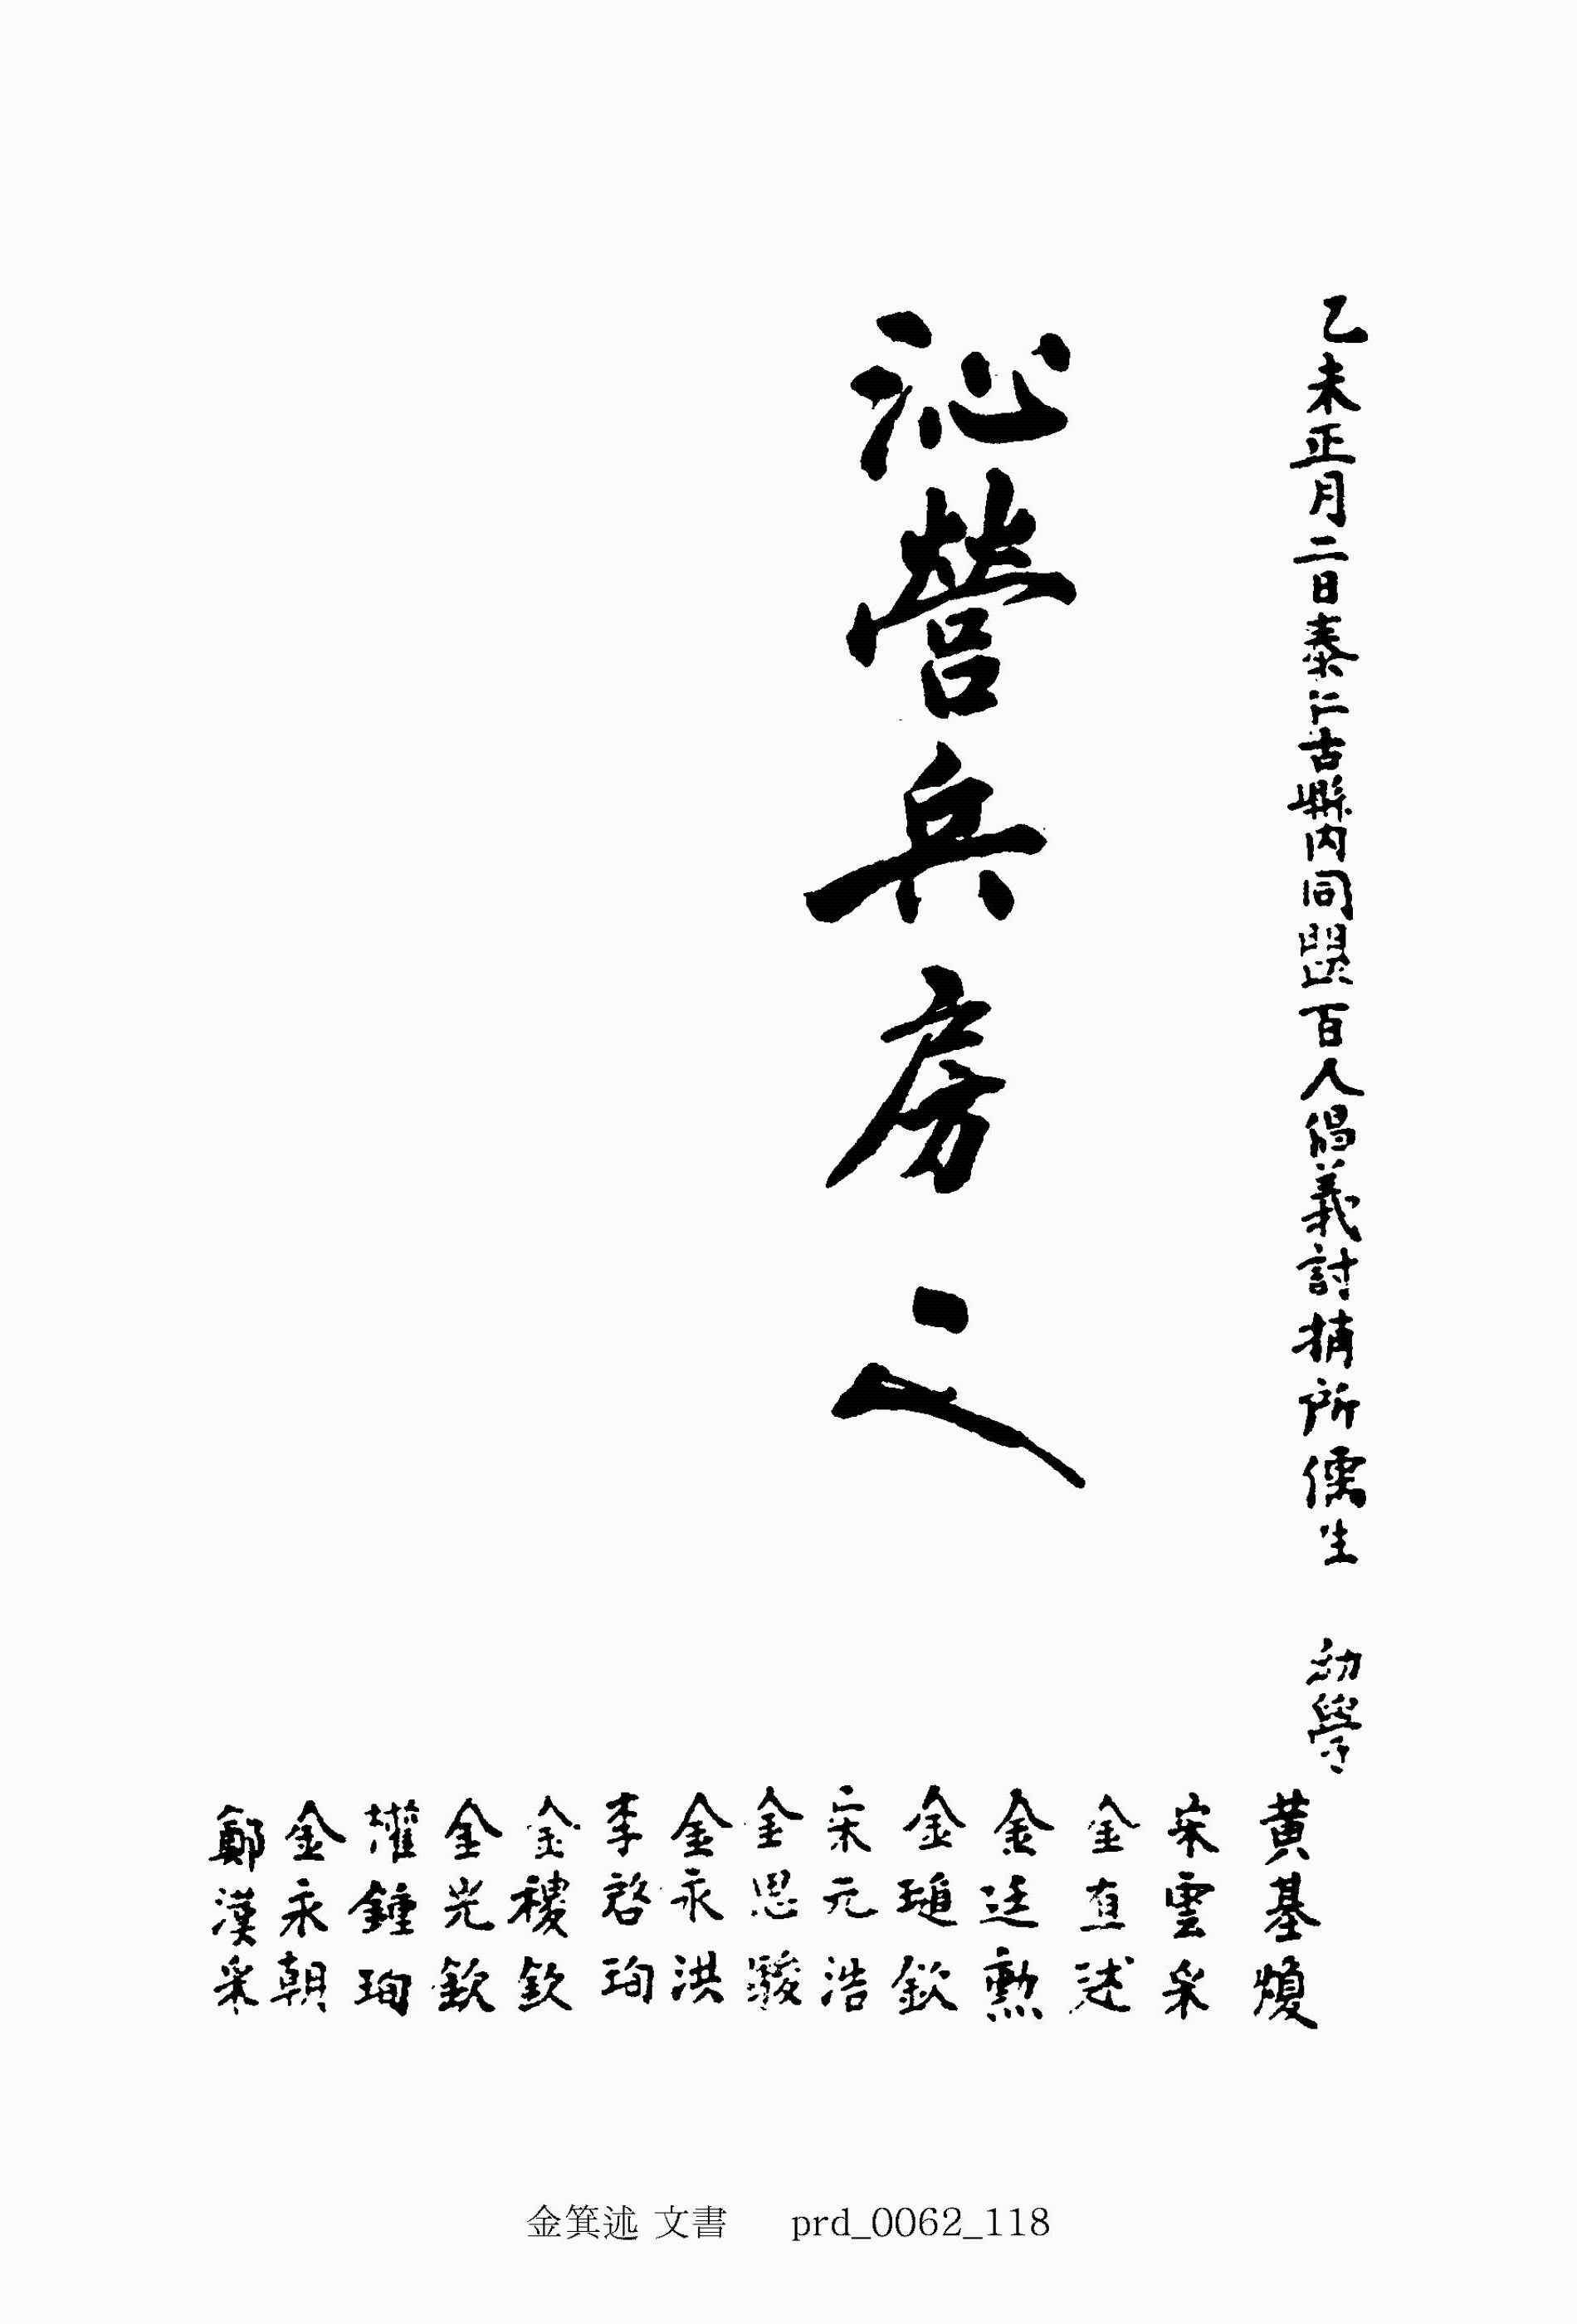 乙未正月二日泰仁古縣內同盟百人倡義討捕所儒生 幼學
黃基煥
宋雲采
金直述
金廷勳
金璡欽
宋元浩
金思駿
金永洪
李啓珣
金稷欽
金光欽
權鍾珣
金永朝
鄭漢采
沁營兵房
金箕述 文書 prd_0062_118